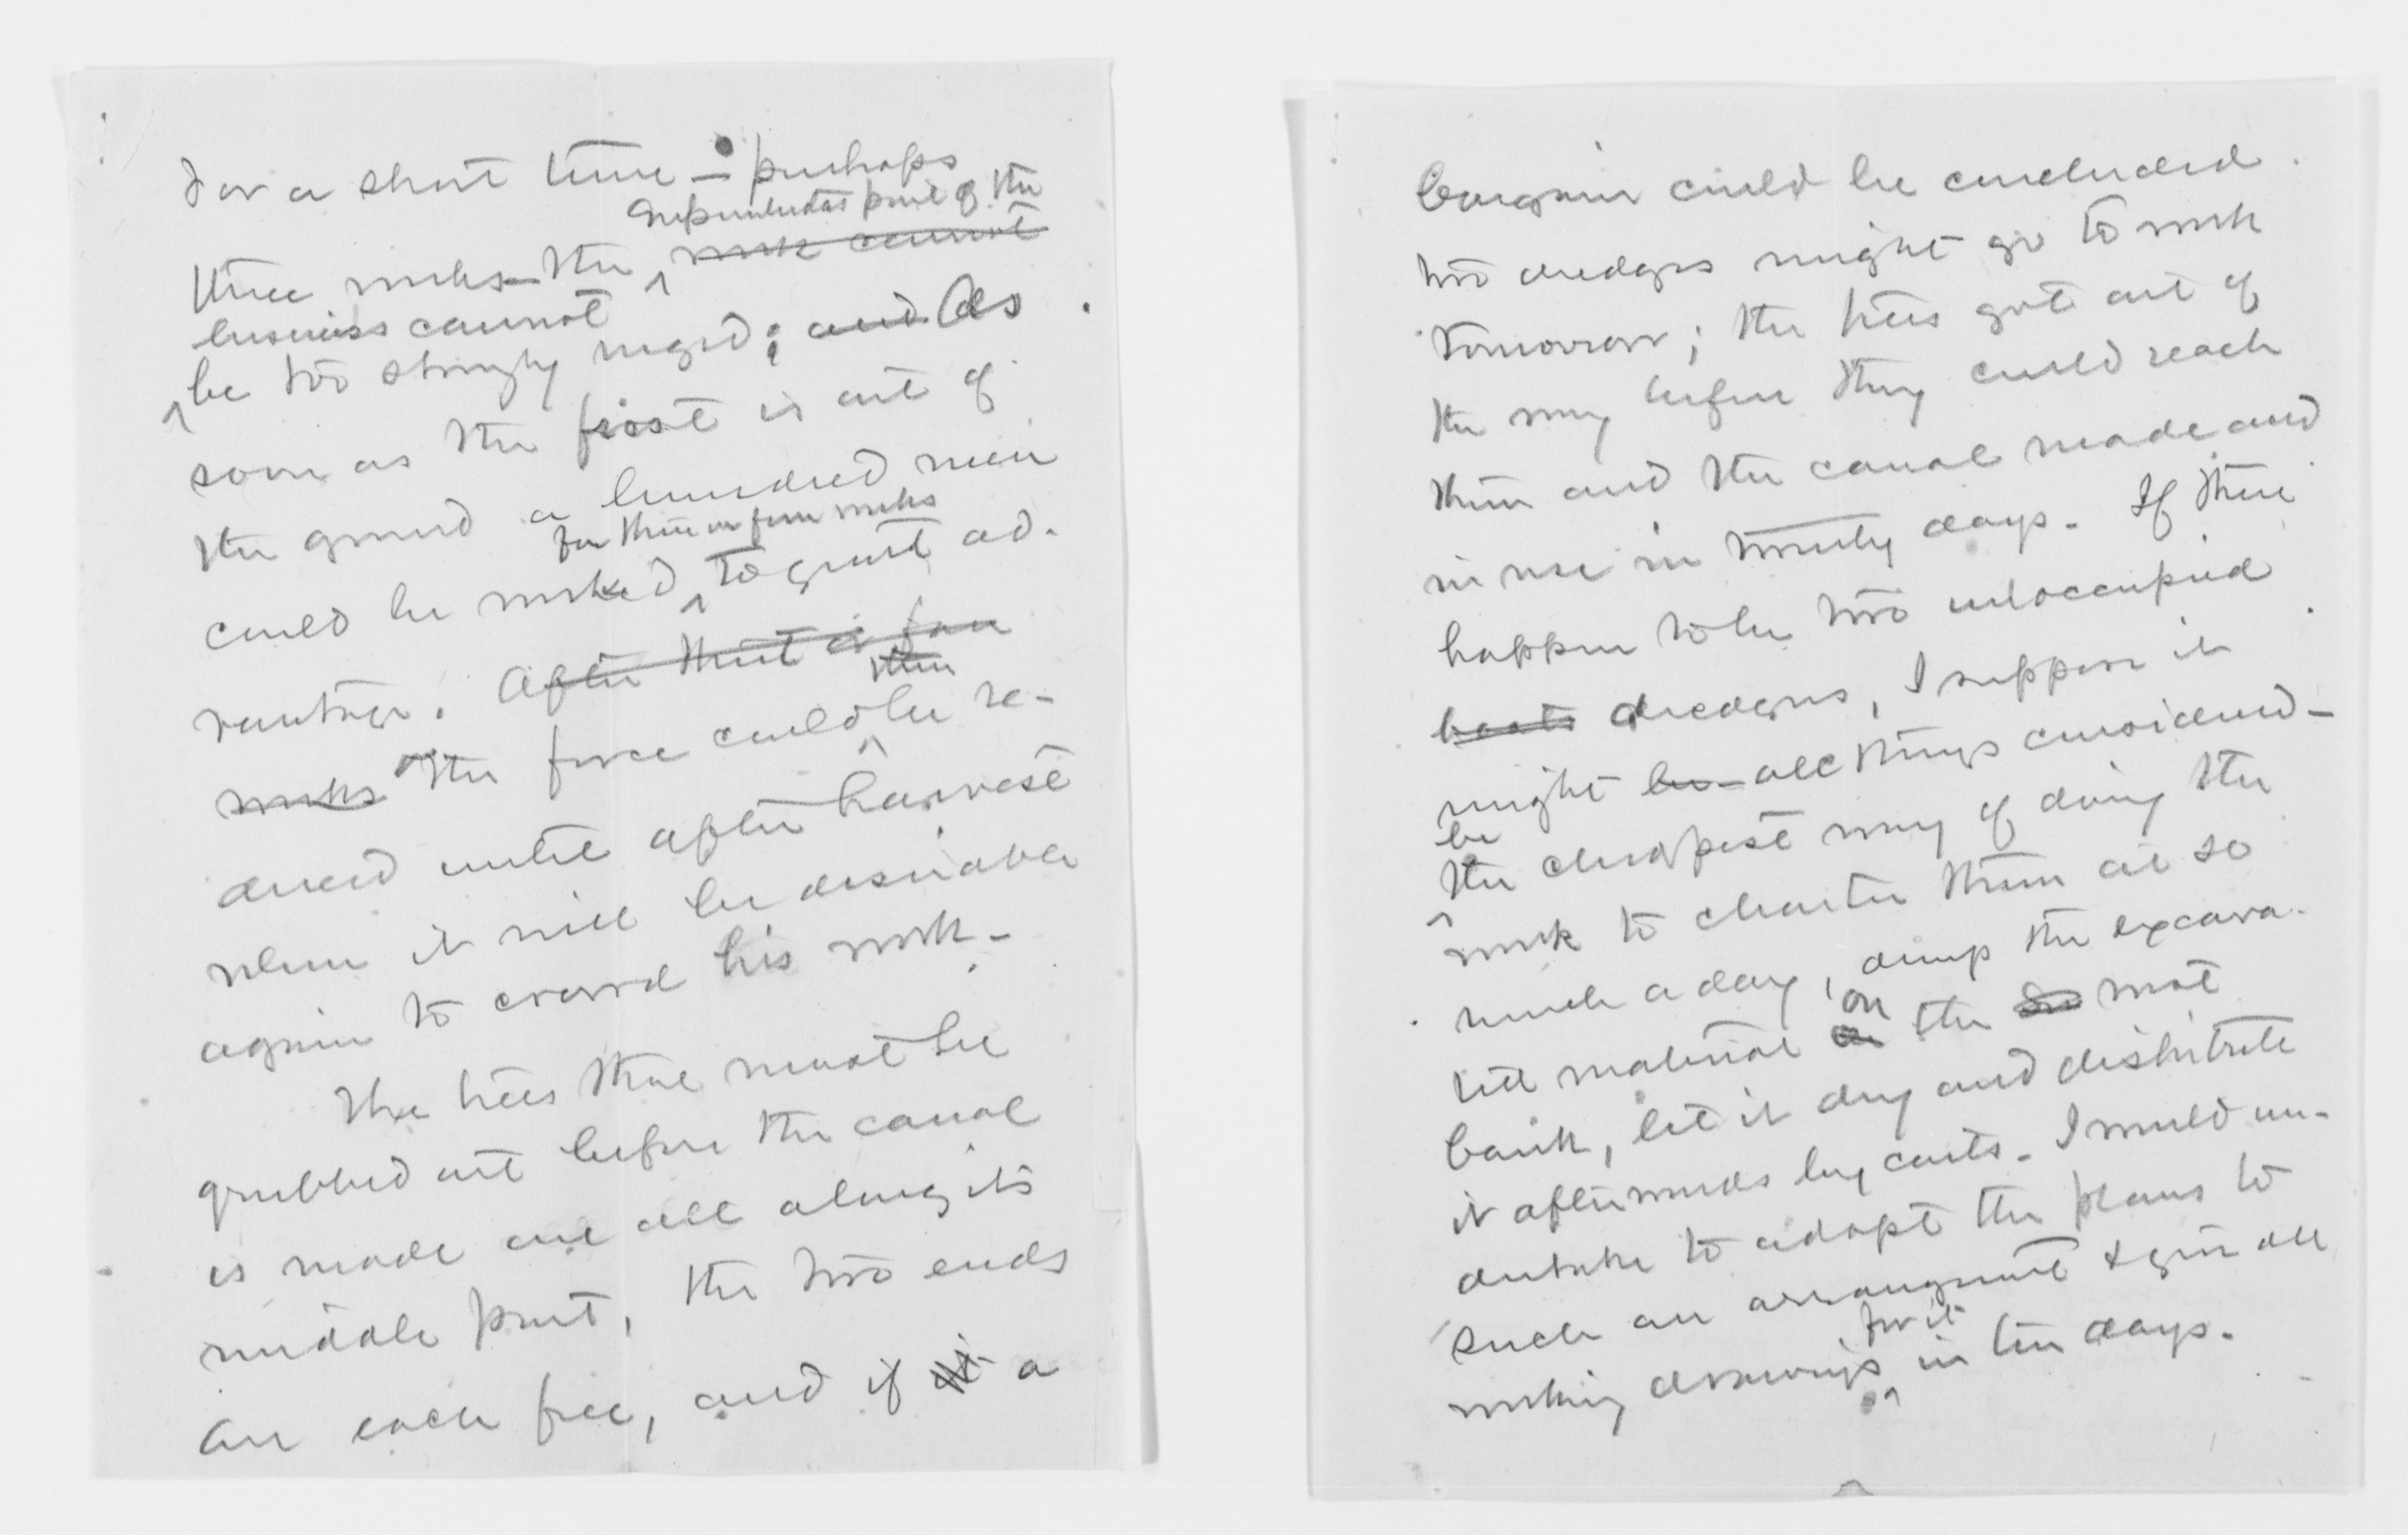 For a short time — perhaps
Superintendents part of the
three weeks — the work cannot
business cannot
be too strongly urged; and As
soon as the frost is out of
the ground a hundred men
for three or four weeks
could be worked to great ad-
vantage. After that a few
then
weeks the force could be re-
duced until after harvest
when it will be desirable
again to crowd his work.
The trees that must be
grubbed out before the canal
is made are all along its
middle part, the two ends
are each free, and if it a
bargain could be concluded
two dredges might go to work
tomorrow; the trees got out of
the way before they could reach
them and the canal made and
in use in twenty days. If there
happen to be two unoccupied
boats dredges, I suppose it
might be - all things considered -
be
the cheapest way of doing the
work to charter them at so
much a day, dump the excava-
on
ted material on the west
bank, let it dry and distribute
it afterwards by carts. I would un-
dertake to adapt the plans to
such an arrangement & give all
for it
working drawings in ten days.